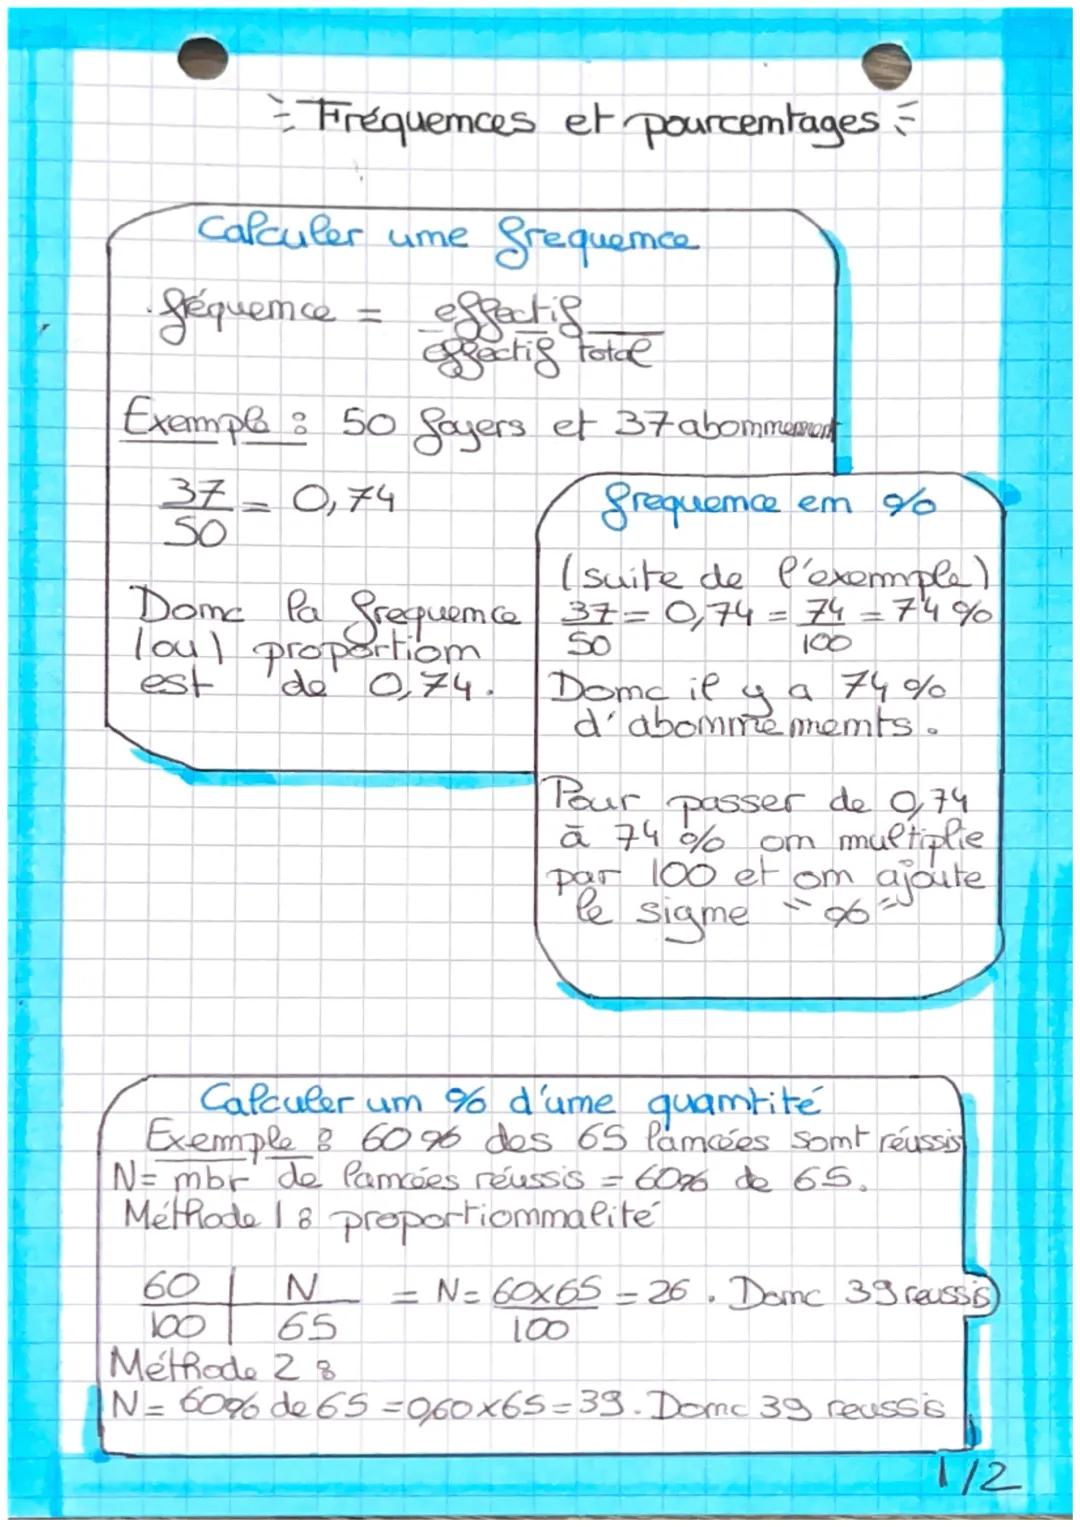 Fréquences et pourcentages
Calculer une frequence
féquence = effectif
effectif total
Exemple : 50 foyers et 37 abonnement
37 = 0,74
50
Donc la frequence
(ou) proportion
est de 0,74.
frequence en %
(suite de l'exemple)
37 = 0,74 = 74 = 74 %
50 100
Donc il y a 74 %
d'abonnements.
Pour passer de 0,74
à 74 % on multiplie
par 100 et on ajoute
le signe "%"
Calculer un % d'une quantité
Exemple : 60 % des 65 lancées sont réussis
N = nbr de lancées réussis = 60% de 65.
Méthode 1 : proportionnalité
60 | N = N = 60x65 = 26. Donc 39 reussis
100 | 65 100
Méthode 2 :
N = 60% de 65 = 0,60 x 65 = 39. Donc 39 reussis
1/2